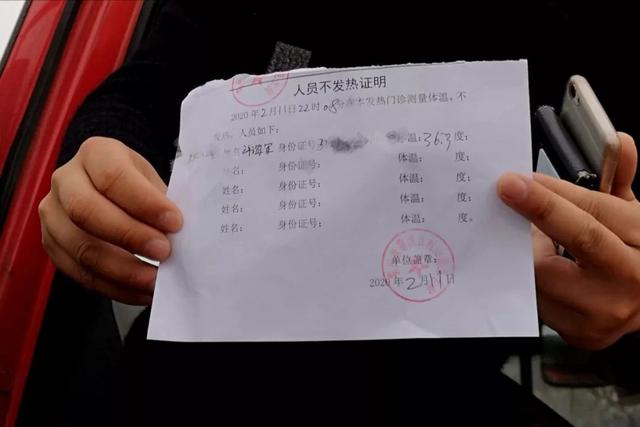 人员不发热证明
2020年2月11日22时08分在本发热门诊测量体温,不
发热。人员如下:
身份证号3 体温:36.3度;
姓名: 身份证号: 体温: 度;
姓名: 身份证号: 体温: 度;
姓名: 身份证号: 体温: 度;
姓名: 身份证号: 体温: 度。
单位盖章:
2020年2月11日